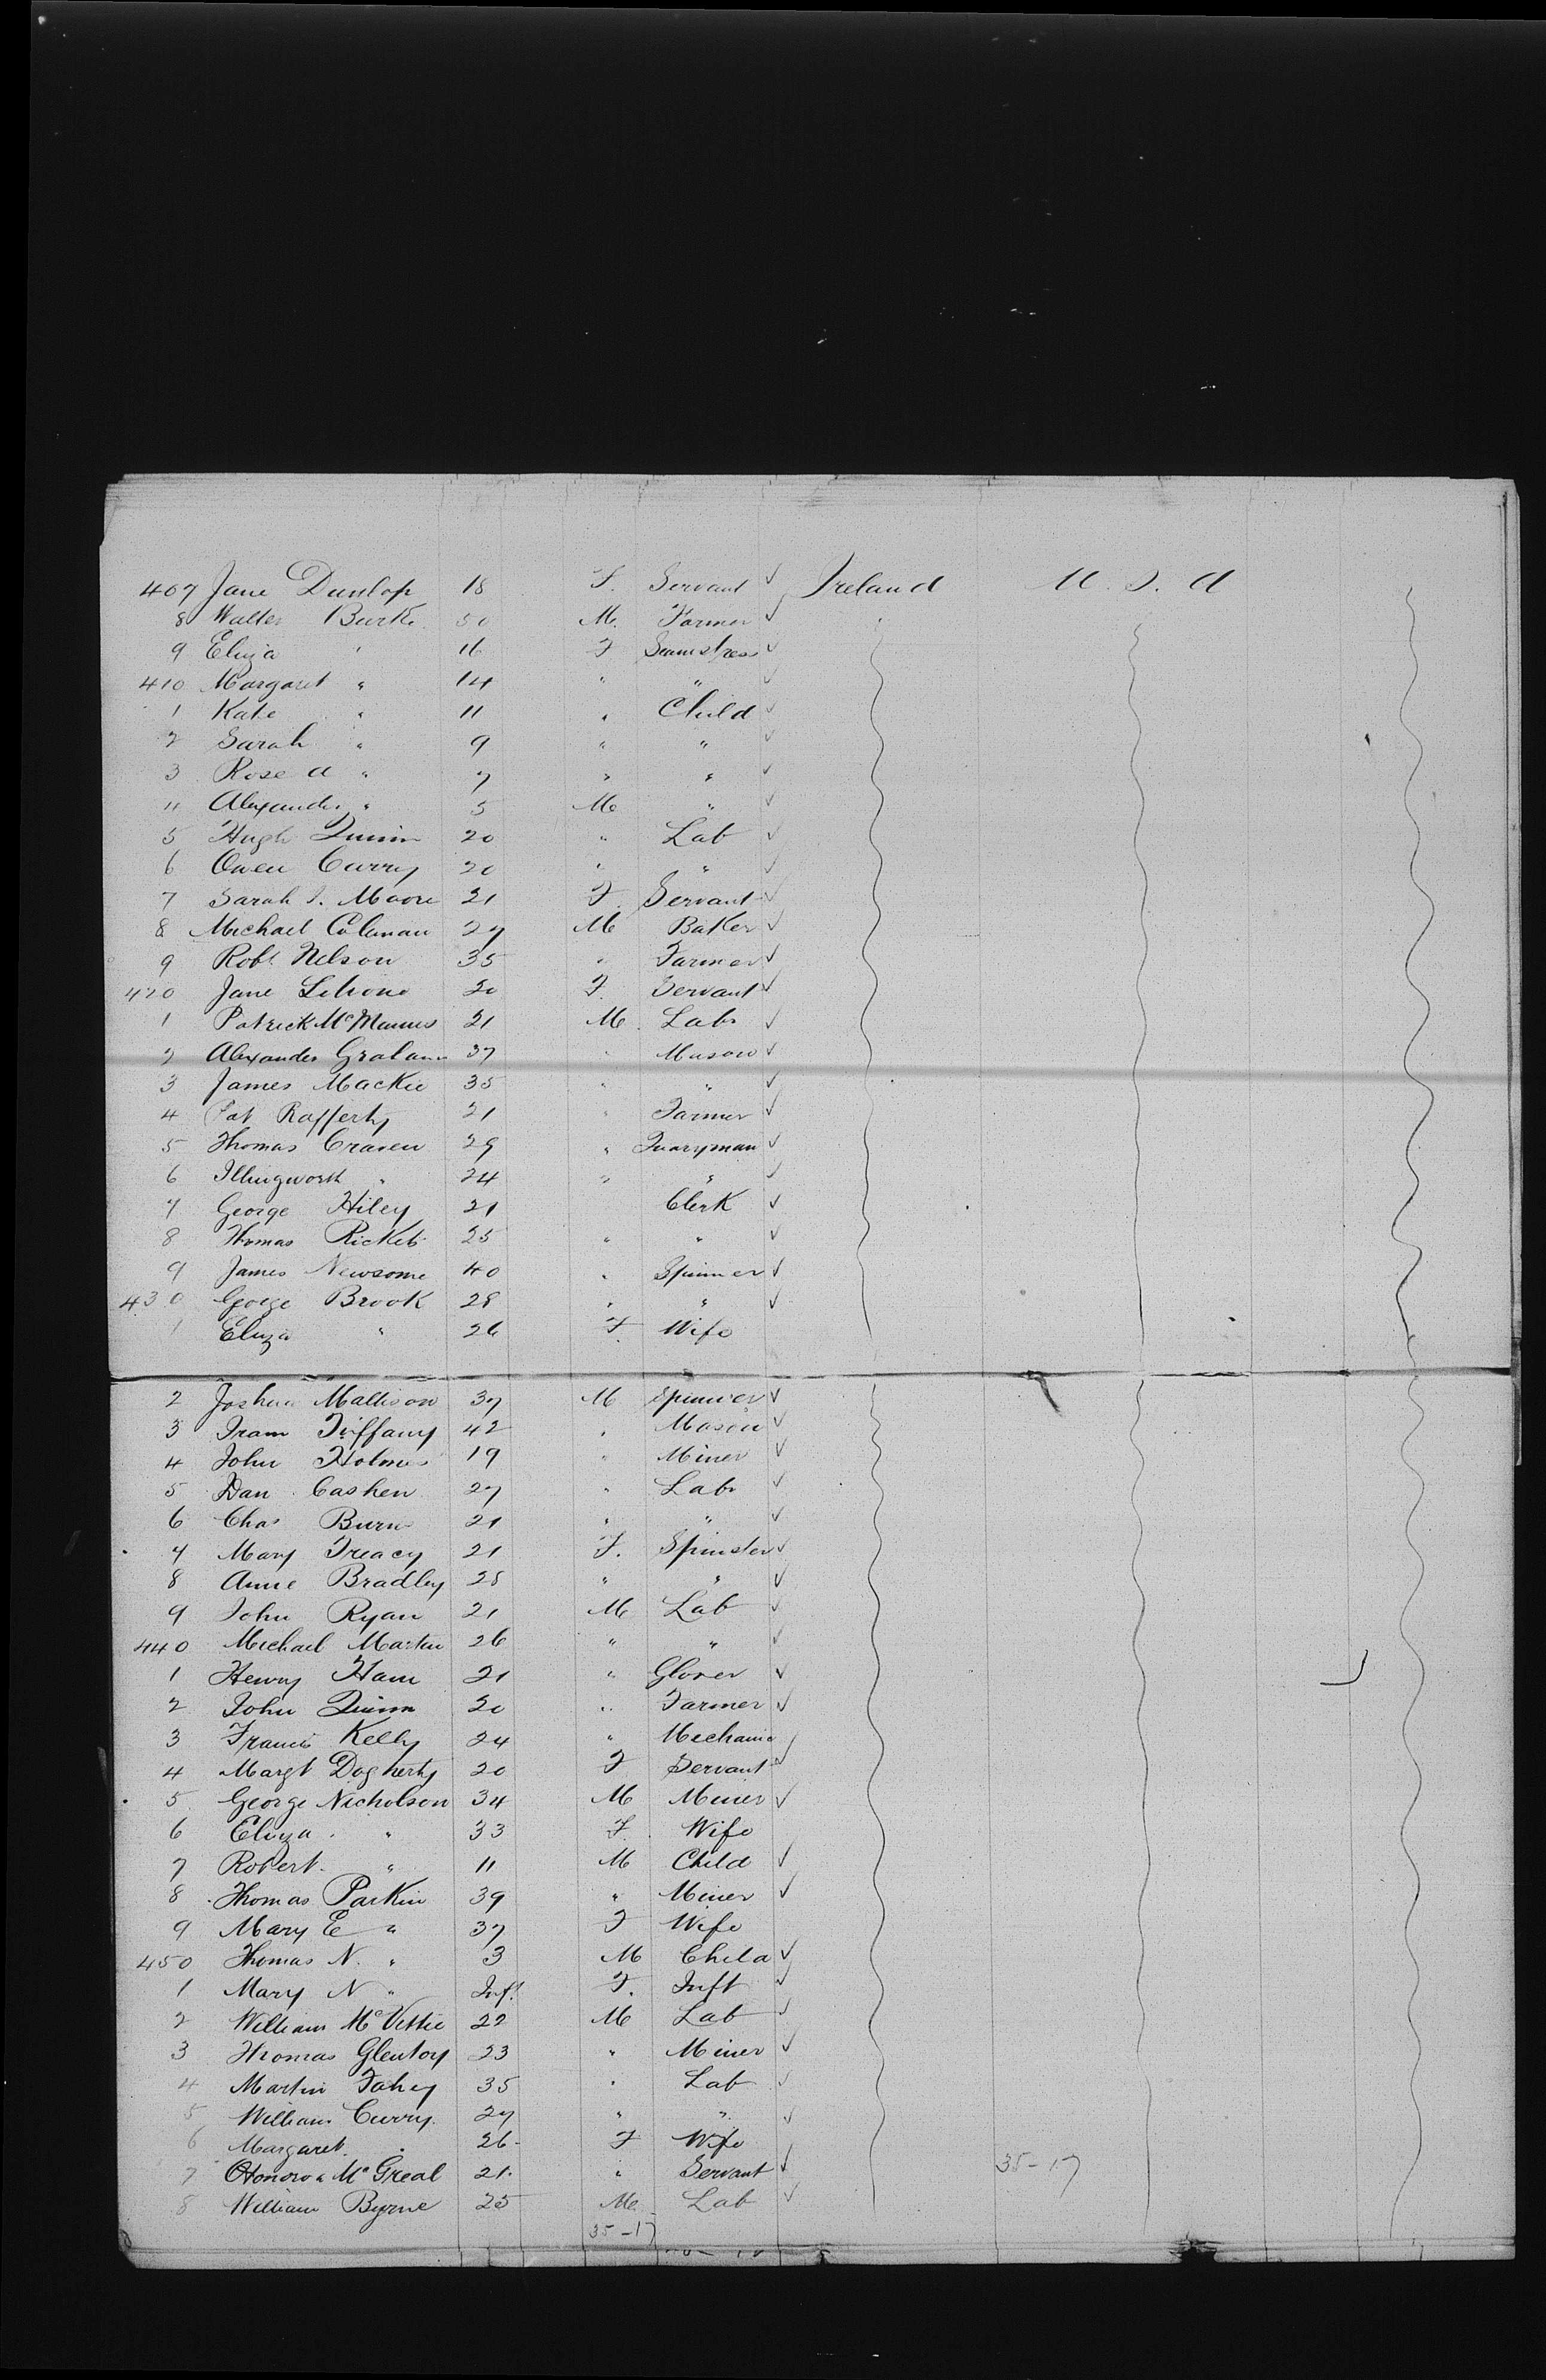 407 Jane Dunlop 18 F. Servant ✓ Ireland U. S. A
8 Walter Burke 50 M. Farmer ✓
9 Eliza " 16 F Seamstress ✓
410 Margaret " 14 " " ✓
1 Kate " 11 " Child ✓
2 Sarah " 9 " " ✓
3 Rose A " 7 " " ✓
4 Alexander " 5 M " ✓
5 Hugh Quinn 20 " Lab ✓
6 Owen Curry 20 " " ✓
7 Sarah J. Moore 21 F. Servant ✓
8 Michael Coleman 27 M Baker ✓
9 Robt Nelson 35 " Farmer ✓
420 Jane 20 F. Servant ✓
1 Patrick McManus 21 M. Labr ✓
2 Alexander Graham 37 " Mason ✓
3 James Mackie 35 " " ✓
4 Pat Rafferty 21 " Farmer ✓
5 Thomas Craven 29 " Quaryman ✓
6 Illingworth " 24 " " ✓
7 George Hiley 21 Clerk ✓
8 Thomas Rickets 25 " " ✓
9 James Newsome 40 " Spinner ✓
430 George Brook 28 " " ✓
1 Eliza " 26 F. Wife
2 Joshua Mallison 37 M Spinner ✓
3 Tiffany 42 " Mason ✓
4 John Holmes 19 " Miner ✓
5 Dan Cashen 27 " Labr ✓
6 Chas Burns 21 " " ✓
7 Mary Treacy 21 F. Spinster ✓
8 Anne Bradley 28 " " ✓
9 John Ryan 21 M Lab ✓
440 Michael Martin 26 " " ✓
1 Henry Ham 21 " Glover ✓
2 John Quinn 20 " Farmer ✓
3 Francis Kelly 24 " Mechanic
4 Margt Dogherty 20 F Servant ✓
5 George Nicholson 34 M Miner ✓
6 Eliza " 33 F. Wife
7 Robert " 11 M Child ✓
8 Thomas Parkin 39 " Miner ✓
9 Mary E " 37 F Wife
450 Thomas N. " 3 M Child ✓
1 Mary N " Inft F. Inft ✓
2 William McVittie 22 M Lab ✓
3 Thomas 23 " Miner ✓
4 Martin Fahey 35 " Lab ✓
5 William Curry 27 " " ✓
6 Margaret " 26 F Wife
7 Honora McGreal 21 " Servant ✓ 35-17
8 William Byrne 25 M Lab ✓
35-17